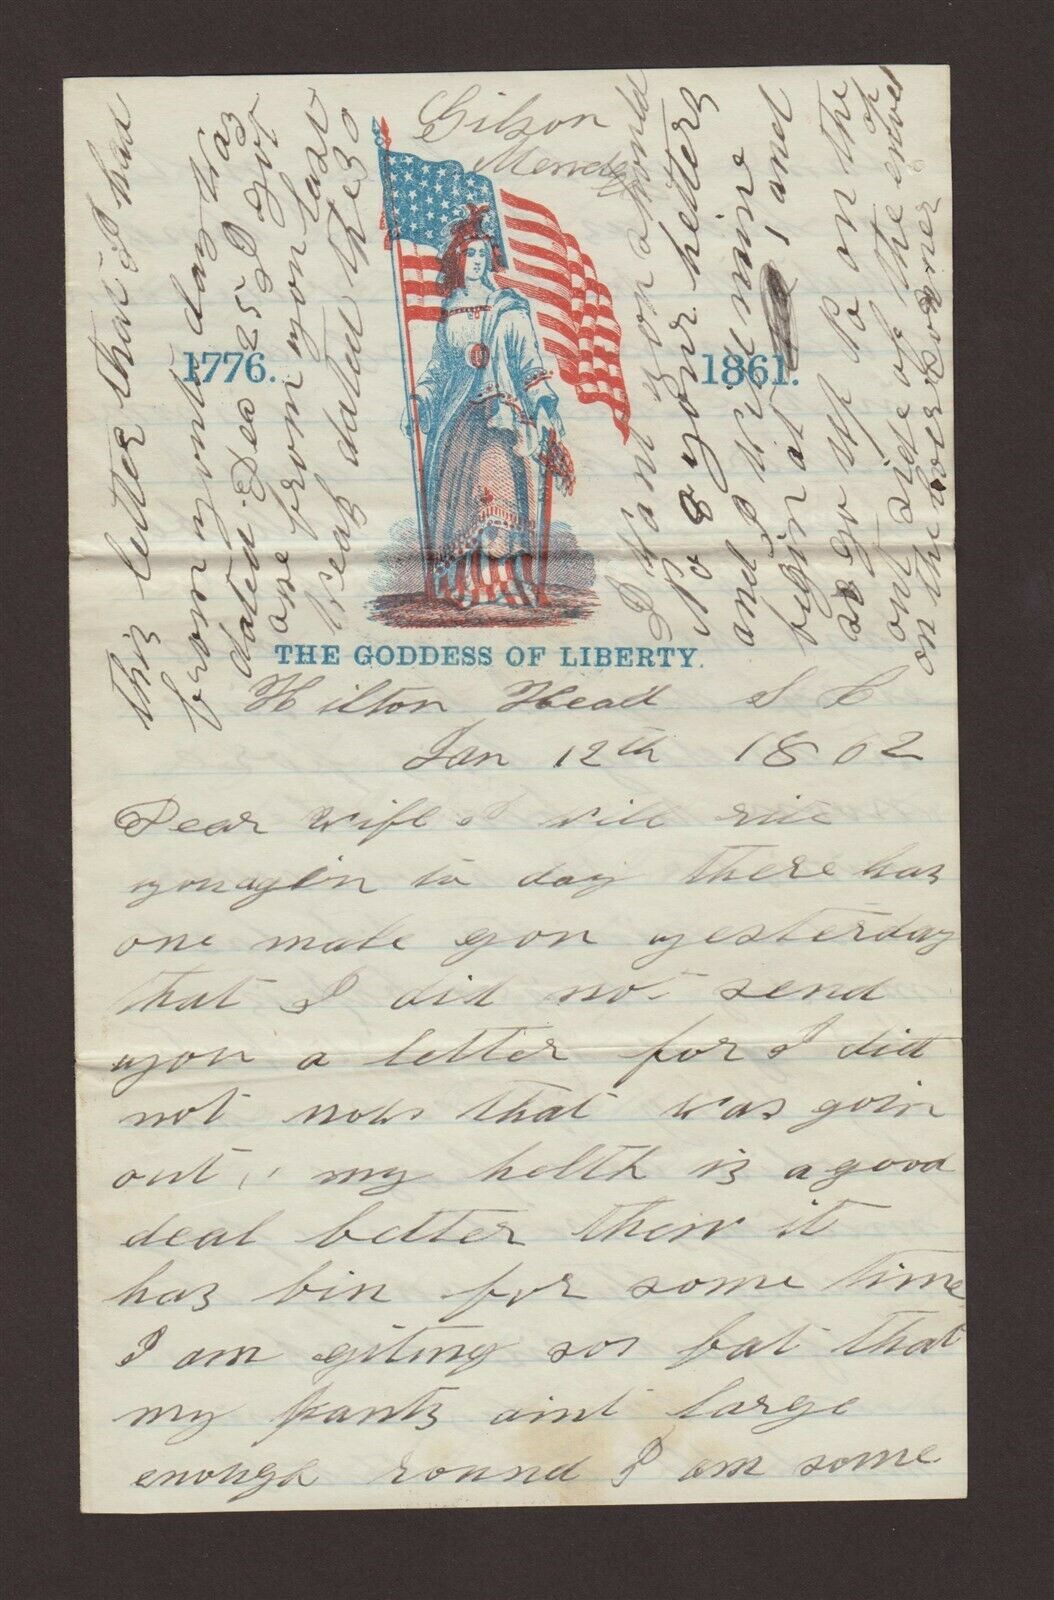 Gilson
1776.
1861.
THE GODDESS OF LIBERTY.
Hilton Head S C
Jan 12th 1862
Dear Wife I will rite
you agin to day there has
one male gon yesterday
that I did not send
you a letter for I did
not now that was goin
out, my helth is a good
deal better then it
has bin for some time
I am giting so fat that
my pants aint large
enough round I am some
this letter that I had
from you to day was
dated Dec 25 I got
one from you last
Weak dated the 30
I Want you should
No your letters
and I will mine
begin at 1 and
so go up No on the
out side of the envelop
on the lower corner